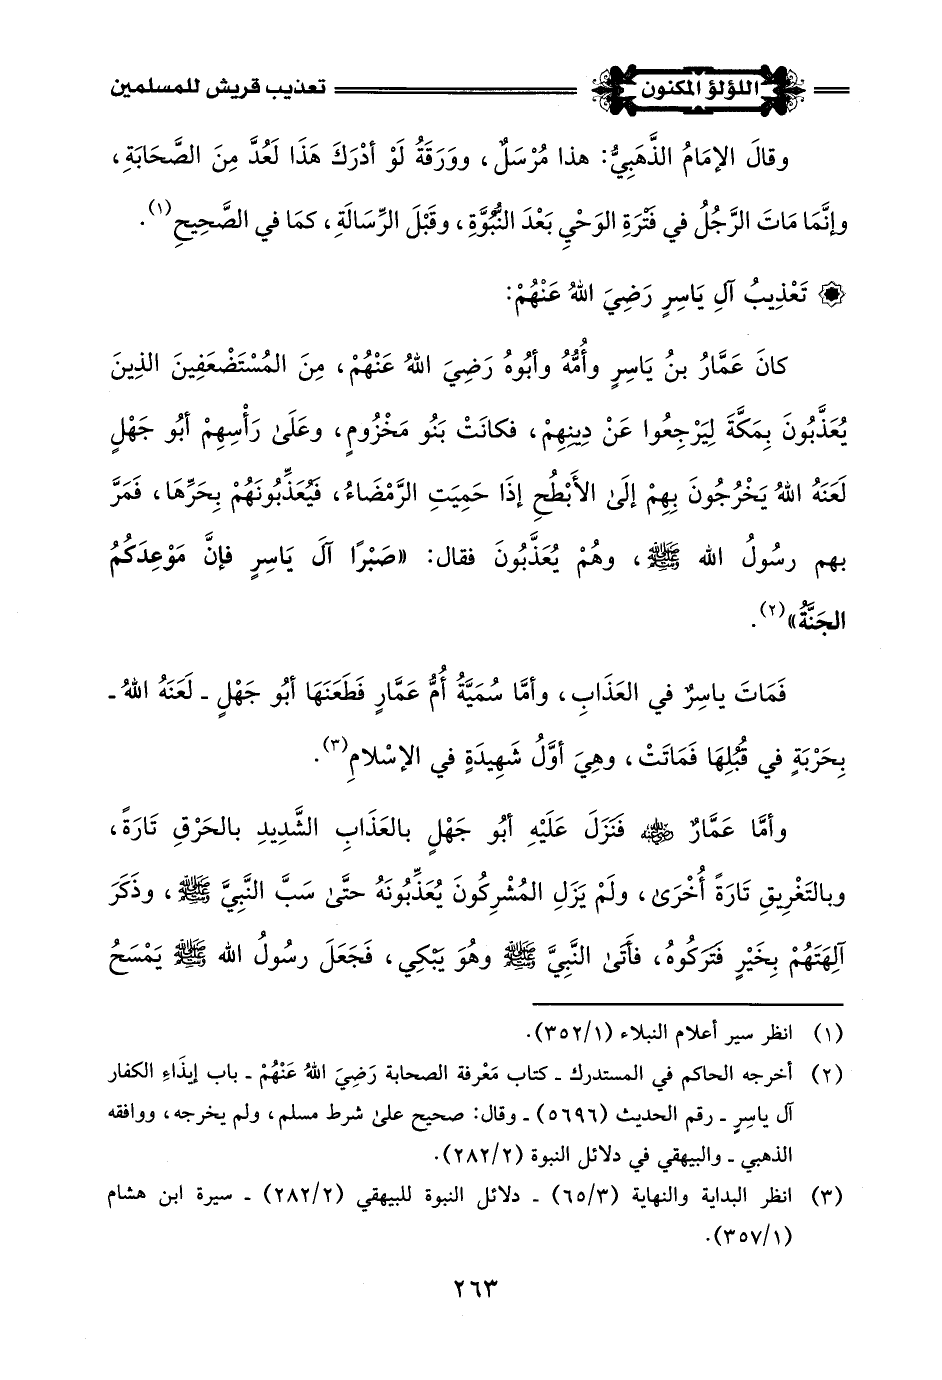 اللؤلؤ المكنون تعذيب قريش للمسلمين
وقالَ الإمَامُ الذَّهَبِيُّ: هذا مُرْسَلٌ، ووَرَقَةُ لَوْ أدْرَكَ هَذَا لَعُدَّ مِنَ الصَّحَابَةِ،
وإنَّمَا مَاتَ الرَّجُلُ في فَتْرَةِ الوَحْيِ بَعْدَ النُّبُوَّةِ، وقَبْلَ الرِّسَالَةِ، كمَا في الصَّحِيحِ(١).
تَعْذِيبُ آلِ يَاسِرٍ رَضِيَ اللهُ عَنْهُمْ:
كانَ عَمَّارُ بنُ يَاسِرٍ وأُمُّهُ وأبُوهُ رَضِيَ اللهُ عَنْهُمْ، مِنَ المُسْتَضْعَفِينَ الذِينَ
يُعَذَّبُونَ بِمَكَّةَ لِيَرْجِعُوا عَنْ دِينِهِمْ، فكانَتْ بَنُو مَخْزُومٍ، وعَلَى رَأْسِهِمْ أبُو جَهْلٍ
لَعَنَهُ اللهُ يَخْرُجُونَ بِهِمْ إلَى الأَبْطُحِ إذَا حَمِيَتِ الرَّمْضَاءُ، فَيُعَذِّبُونَهُمْ بِحَرِّهَا، فَمَرَّ
بهم رسُولُ الله ﷺ، وهُمْ يُعَذَّبُونَ فقال: «صَبْرًا آلَ يَاسِرٍ فإنَّ مَوْعِدَكُمُ
الجَنَّةُ»(٢).
فَمَاتَ ياسِرٌ في العَذَابِ، وأمَّا سُمَيَّةُ أُمُّ عَمَّارٍ فَطَعَنَهَا أبُو جَهْلٍ ـ لَعَنَهُ اللهُ ـ
بِحَرْبَةٍ في قُبُلِهَا فَمَاتَتْ، وهِيَ أوَّلُ شَهِيدَةٍ في الإسْلامِ(٣).
وأمَّا عَمَّارٌ رضي الله عنه فَنَزَلَ عَلَيْهِ أبُو جَهْلٍ بالعَذَابِ الشَّدِيدِ بالحَرْقِ تَارَةً،
وبالتَغْرِيقِ تَارَةً أُخْرَى، ولَمْ يَزَلِ المُشْرِكُونَ يُعَذِّبُونَهُ حتَّى سَبَّ النَّبِيَّ ﷺ، وذَكَرَ
آلِهَتَهُمْ بِخَيْرٍ فَتَرَكُوهُ، فأَتَى النَّبِيَّ ﷺ وهُوَ يَبْكِي، فَجَعَلَ رسُولُ الله ﷺ يَمْسَحُ
(١) انظر سير أعلام النبلاء (٣٥٢/١).
(٢) أخرجه الحاكم في المستدرك ـ كتاب مَعْرفة الصحابة رَضِيَ اللهُ عَنْهُمْ ـ باب إيذَاءِ الكفار
آل ياسِرٍ ـ رقم الحديث (٥٦٩٦) ـ وقال: صحيح على شرط مسلم، ولم يخرجه، ووافقه
الذهبي ـ والبيهقي في دلائل النبوة (٢٨٢/٢).
(٣) انظر البداية والنهاية (٦٥/٣) ـ دلائل النبوة للبيهقي (٢٨٢/٢) ـ سيرة ابن هشام
(٣٥٧/١).
٢٦٣